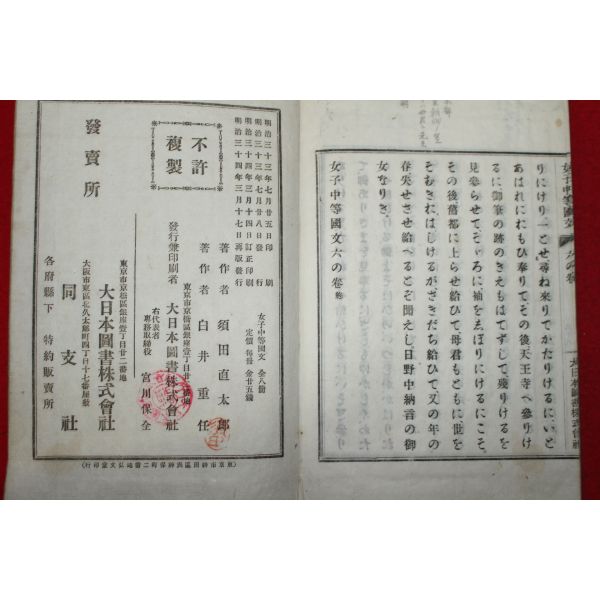 りにけり一とせ尋ね來りてかたりけるにいと
あはれにおもひ奉りてその後天王寺へ參りけ
るに御筆の跡のきえもはてずして殘りけるを
見參らせてそゞろに袖をゑぼりにけるにこそ
その後舊都に上らせ給ひて母君もともに世を
そむきおはしけるがさきだち給ひて又の年の
春失せさせ給へるとぞ聞えし日野中納言の御
女なりき
女子中等國文六の卷 終
女子中等國文
六の卷
大日本圖書株式會社
明治三十三年七月廿五日印刷
明治三十三年七月廿八日發行
明治三十四年三月十四日訂正印刷
明治三十四年三月十七日再版發行
女子中等國文 全八册
定價 每册 金廿五錢
不許複製
著作者 須田直太郎
著作者 白井重任
東京市京橋區銀座壹丁目廿二番地
發行兼印刷者 大日本圖書株式會社
右代表者
專務取締役 宮川保全
發賣所
東京市京橋區銀座壹丁目廿二番地
大日本圖書株式會社
大阪市東區北久太郎町四丁目十七番屋敷
同支社
各府縣下 特約販賣所